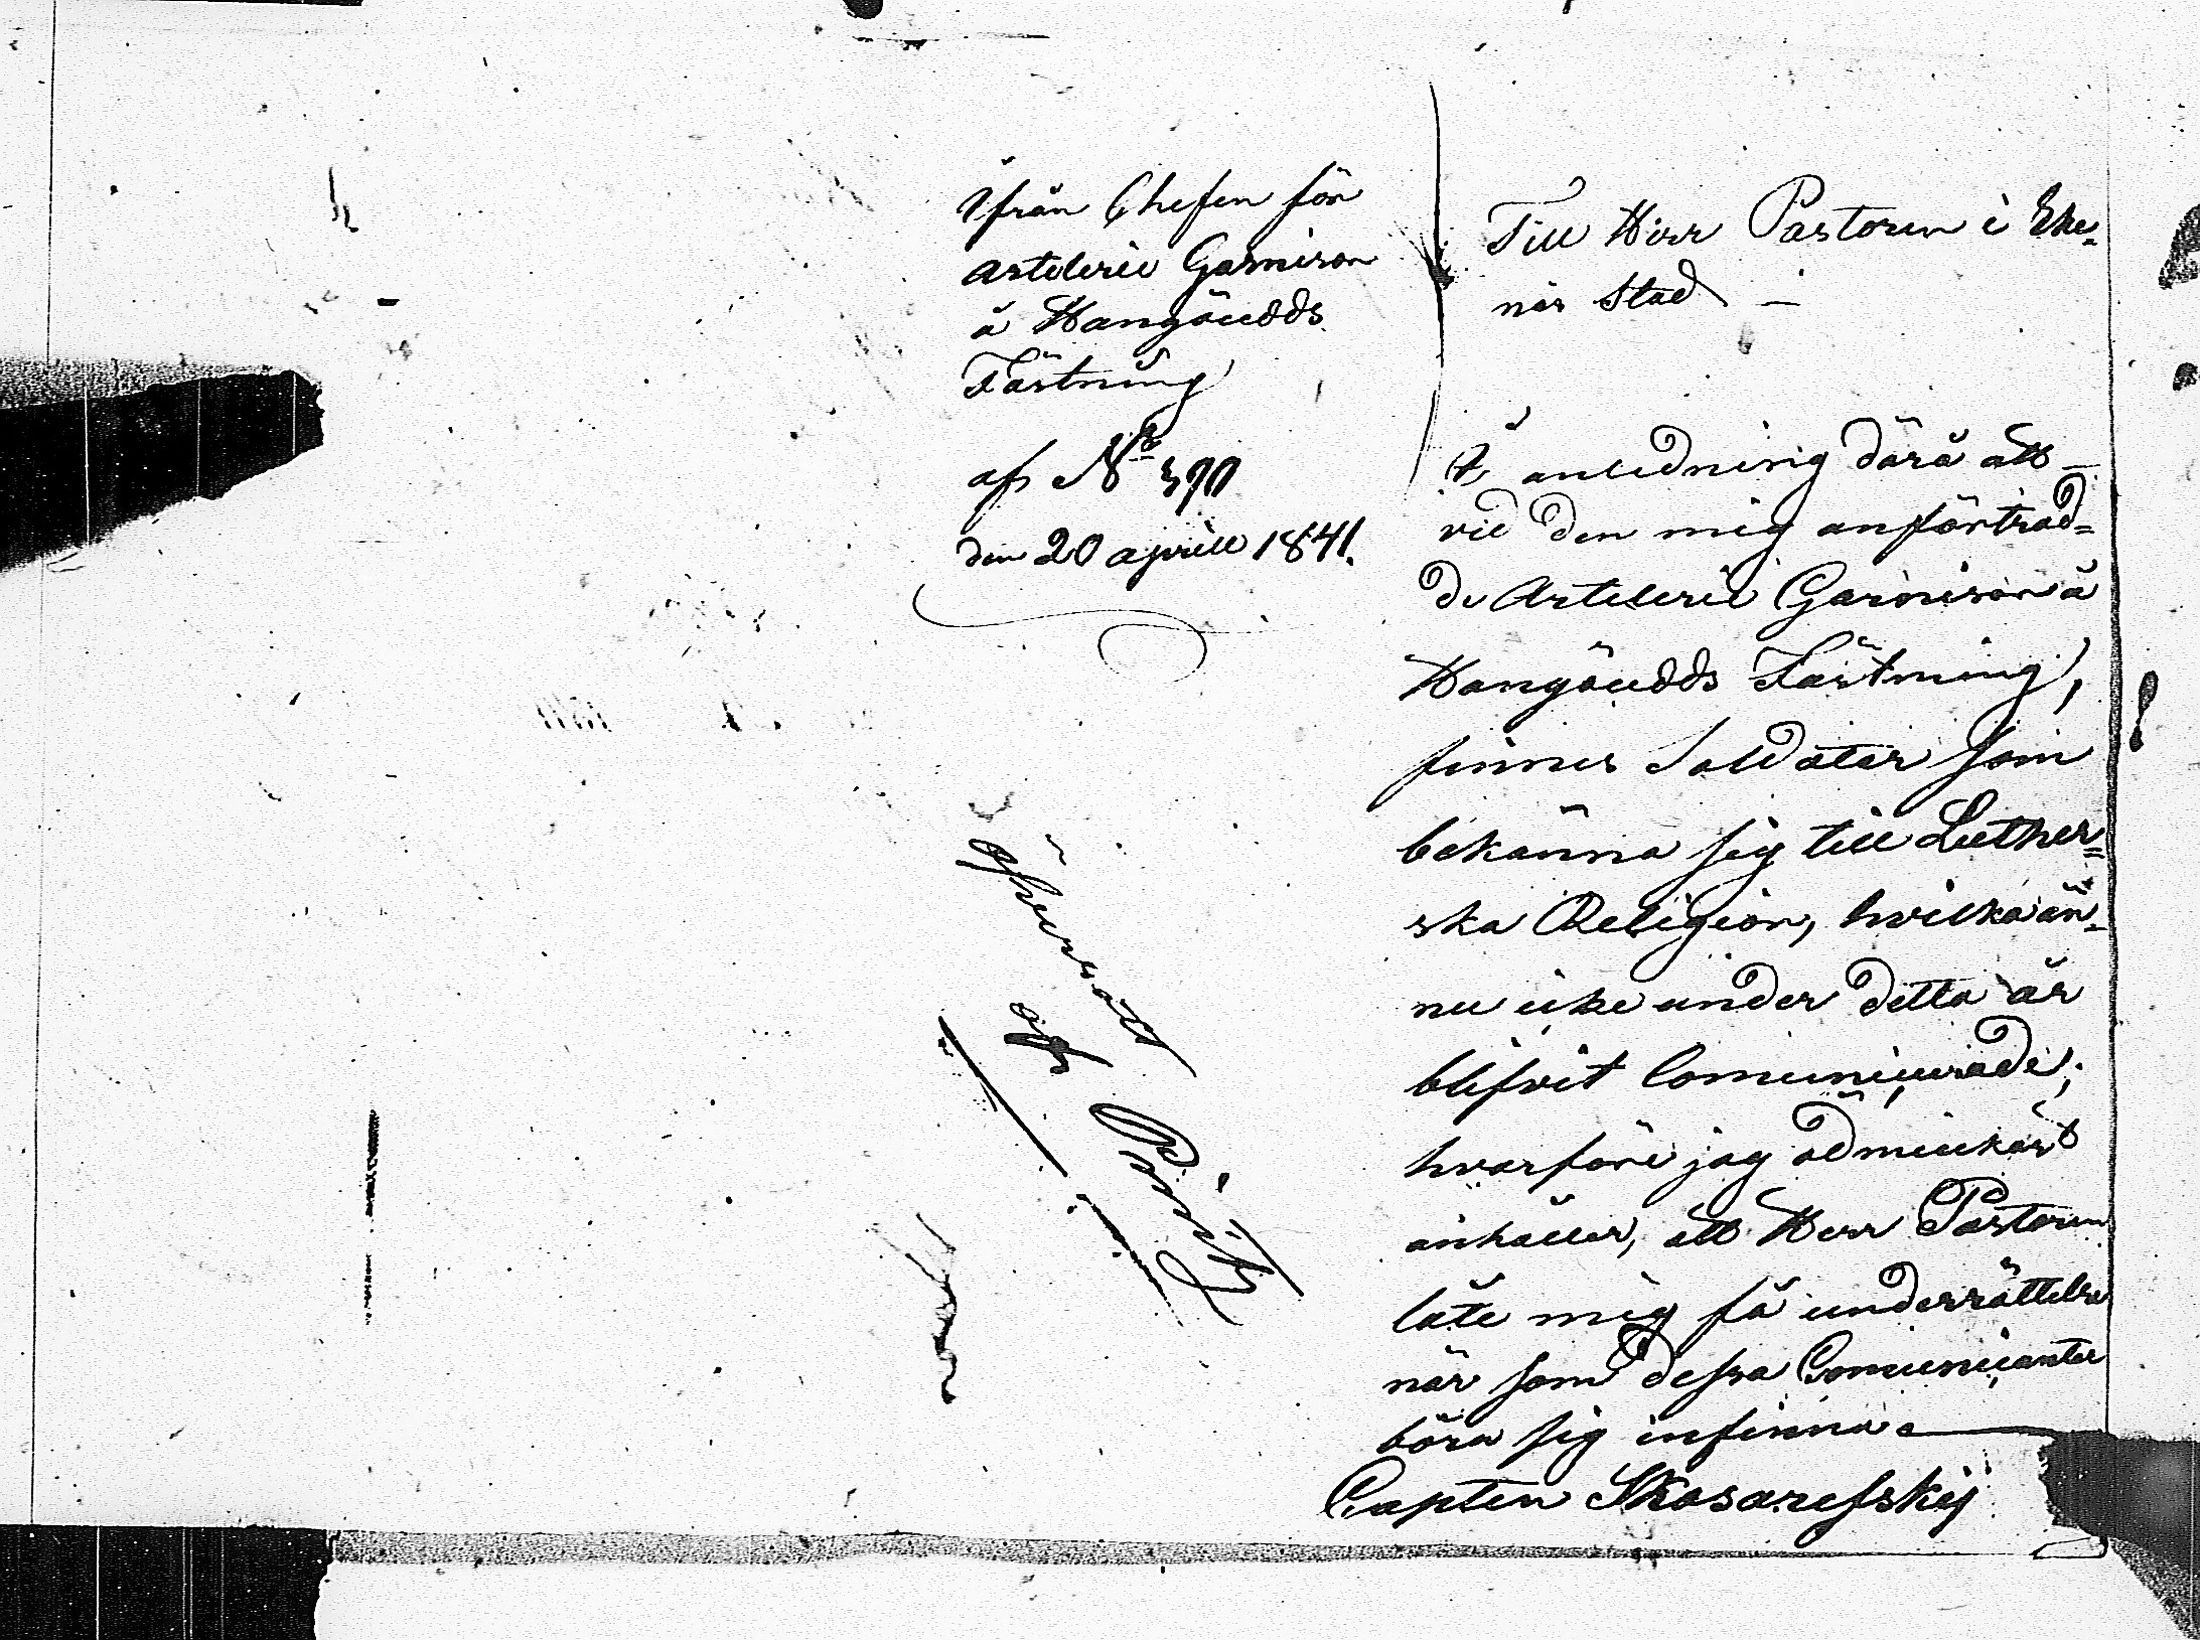 Ifrån Chefen för
Artelerie Garnison
å Hangöudds
Fästning
af No 390
den 20 aprill 1841.
Öfversatt
af
Till Herr Pastoren i Eke=
näs Stad –
I anledning därå att
vid den mig anförtrad=
de Artelerie Garnison å
Hangöudds Fästning,
finnes Soldater som
bekänna sig till Luther=
ska Religion, hvilka än=
nu icke under detta år
blifvit Comunicerade;
hvarföre jag ödmiukast
anhåller, att Herr Pastoren
låte mig få underrättelse
när som dessa Comunicanter
böra sig infinna
Capten Skosarefskij